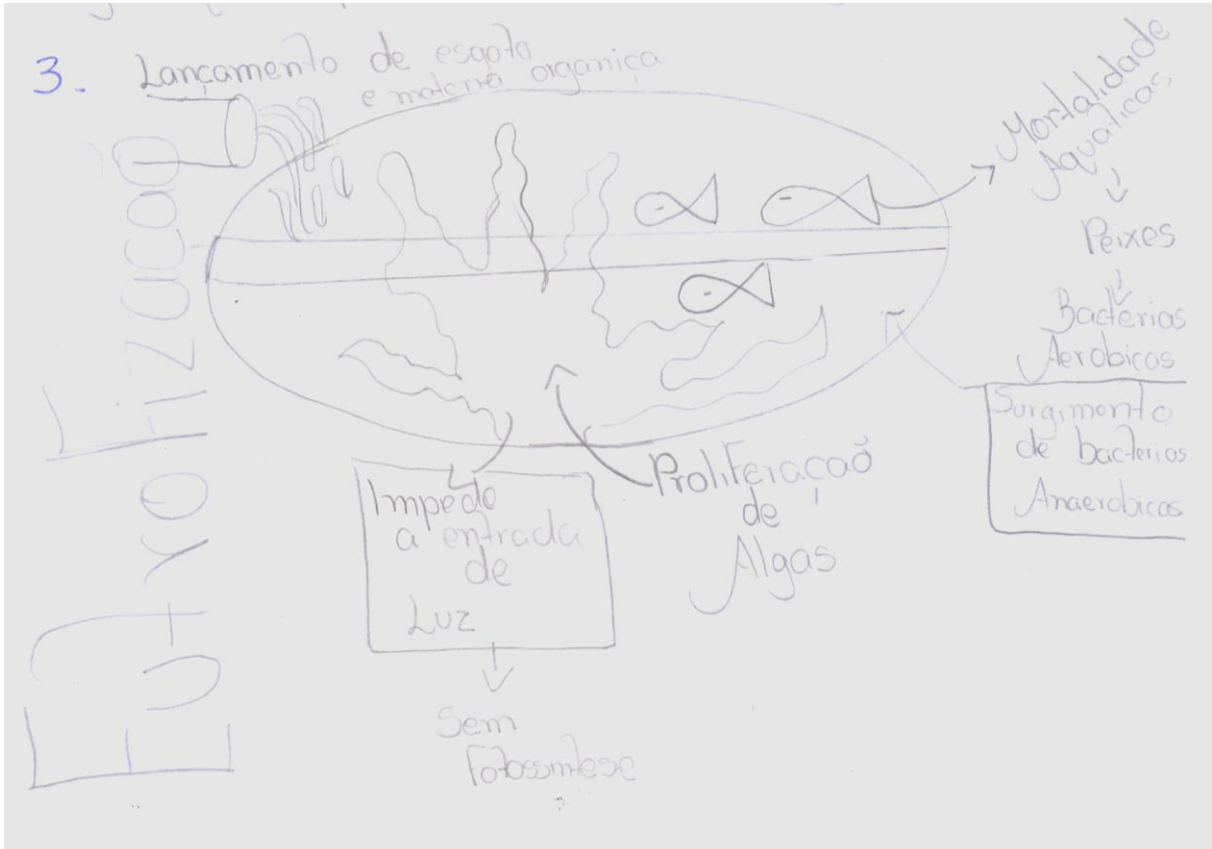 3.
Lançamento de esgoto
e materia organiça
Eutrofização
Mortalidade
Aquáticas
Peixes
Bactérias
Aerobicas
Surgimento
de bacterias
Anaerobicas
Proliferação
de
Algas
Impede
a entrada
de
Luz
Sem
Fotossintese